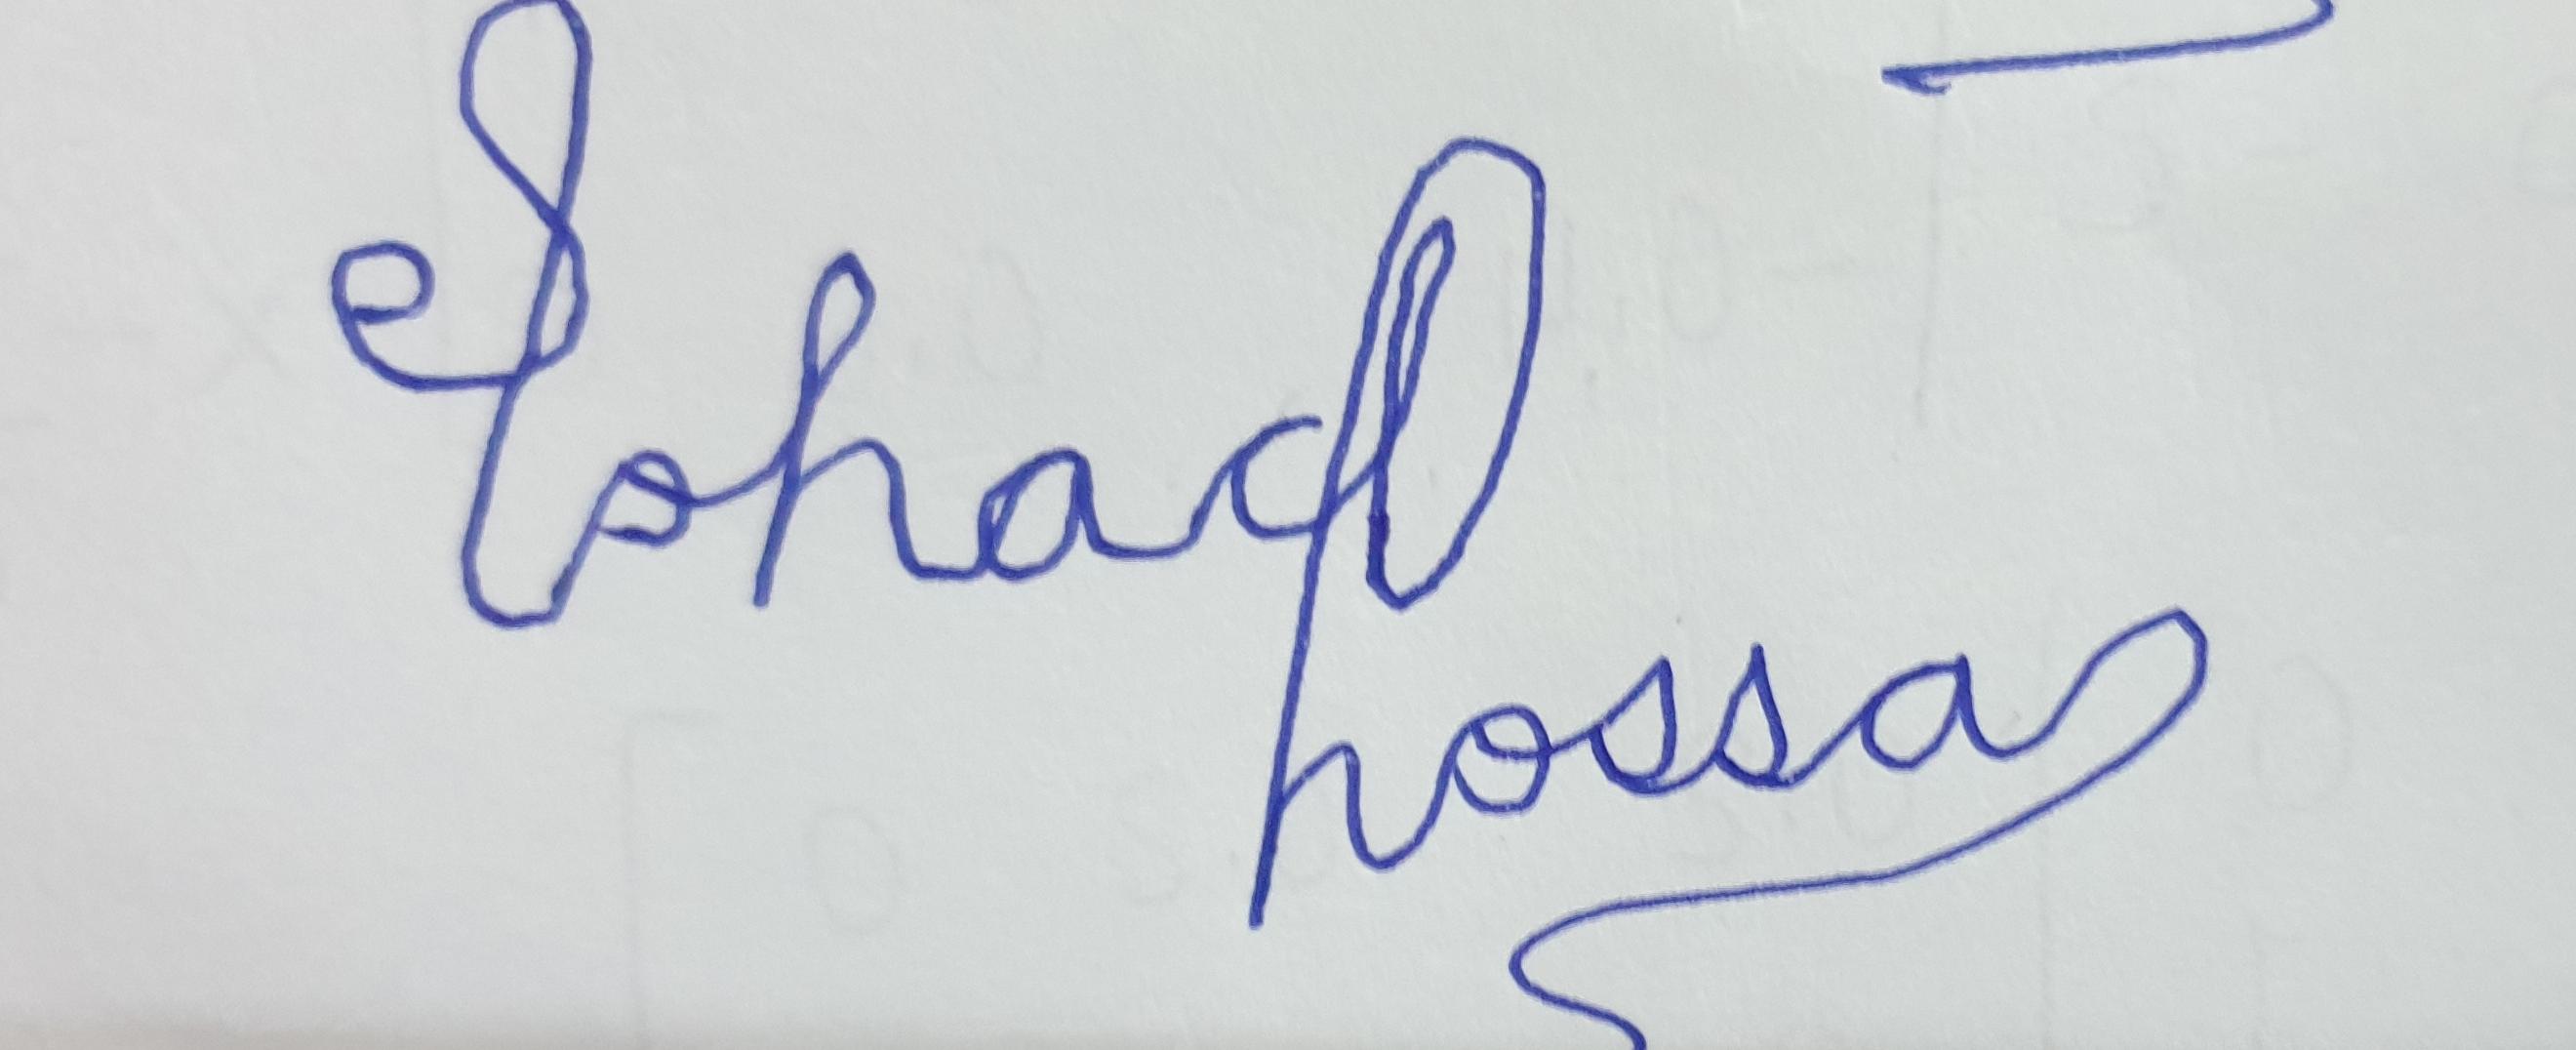 Eshad
hossa